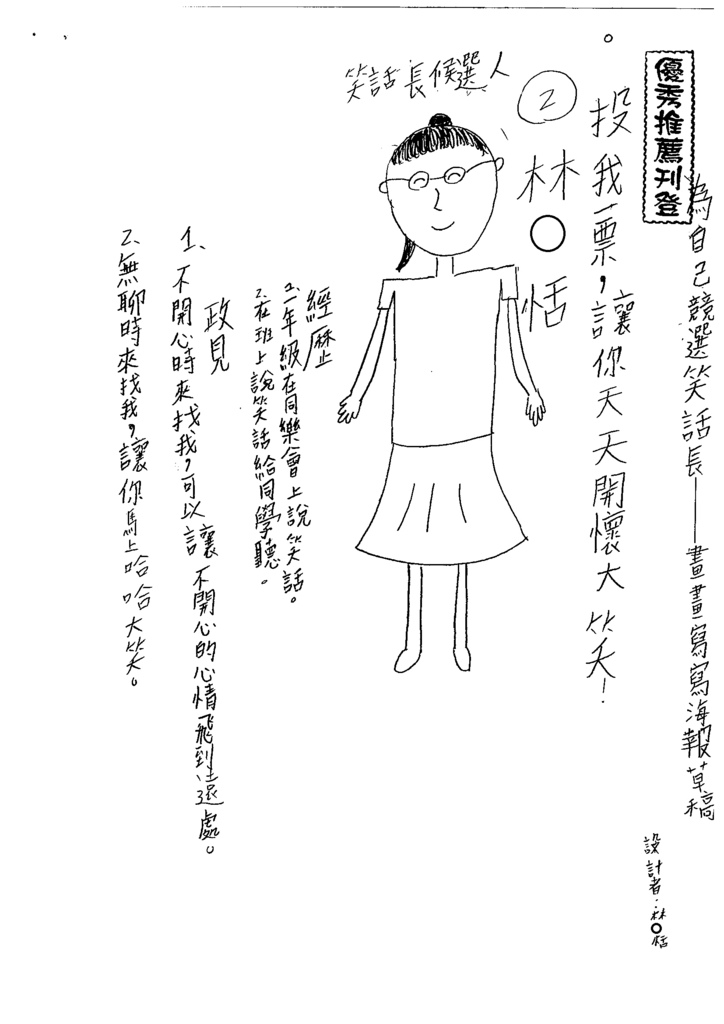 優秀推薦刊登
為自己競選笑話長——畫畫寫寫海報草稿
設計者：林○恬
投我一票，讓你天天開懷大笑！
2
林○恬
笑話長候選人
經歷
1.一年級在同樂會上說笑話。
2.在班上說笑話給同學聽。
政見
1、不開心時來找我，可以讓不開心的心情飛到遠處。
2、無聊時來找我，讓你馬上哈哈大笑。